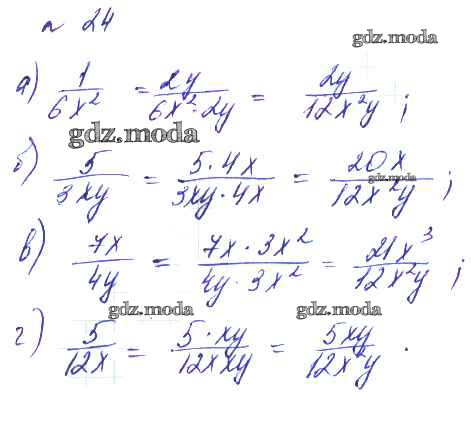 № 24
gdz.moda
а) 1/(6x²) = 2y/(6x²·2y) = 2y/(12x²y);
gdz.moda
б) 5/(3xy) = (5·4x)/(3xy·4x) = 20x/(12x²y);
gdz.moda
в) 7x/(4y) = (7x·3x²)/(4y·3x²) = 21x³/(12x²y);
gdz.moda gdz.moda
г) 5/(12x) = (5·xy)/(12xxy) = 5xy/(12x²y).